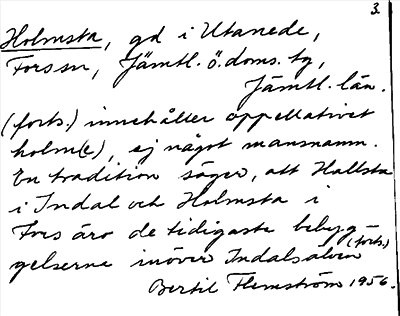 3.
Holmsta, gd i Utanede,
Forssn, Jämtl. ö. doms. tg,
Jämtl. län.
(forts.) innehåller appellativet
holm(e), ej något mansnamn.
En tradition säger, att Hallsta
i Indal och Holmsta i
Fors äro de tidigaste bebyg-
gelserna inöver Indalsälven (forts.)
Bertil Flemström 1956.